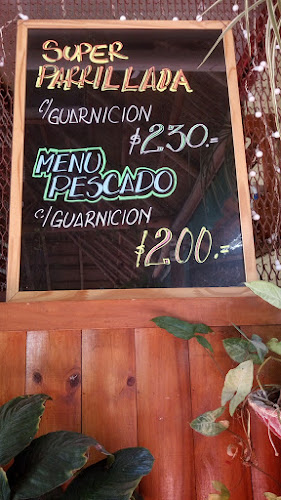 SUPER
PARRILLADA
C/GUARNICION
$230.=
MENU
PESCADO
C/GUARNICION
$200.=